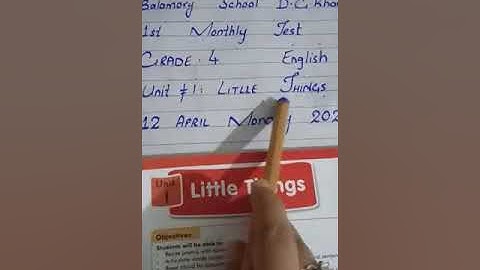 Balamory School D.G. Khan
1st Monthly Test
GRADE: 4 English
Unit #1: LITLLE THINGS
12 APRIL Monday 202
Unit
1
Little Things
Objectives:
Students will be able to: